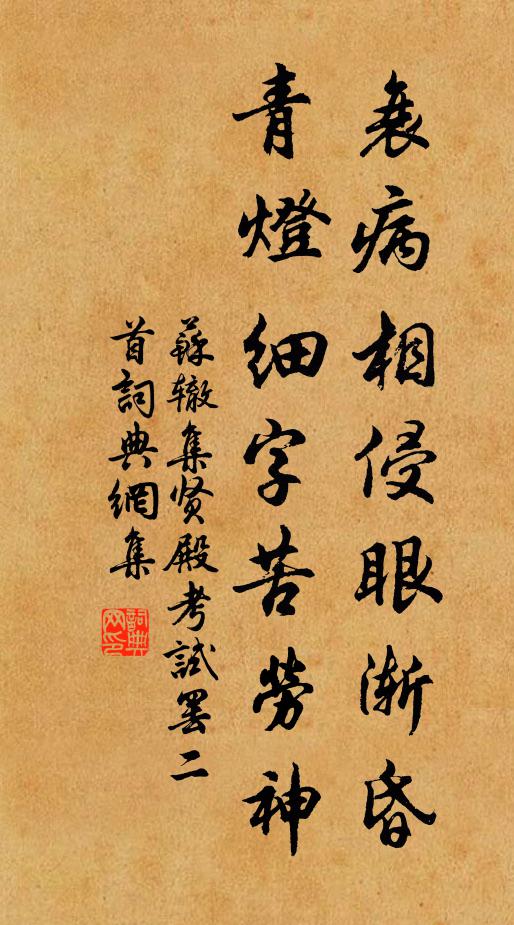 衰病相侵眼渐昏
青燈细字苦勞神
蘇辙集贤殿考試罢二
首詞典網集
詞典
网印